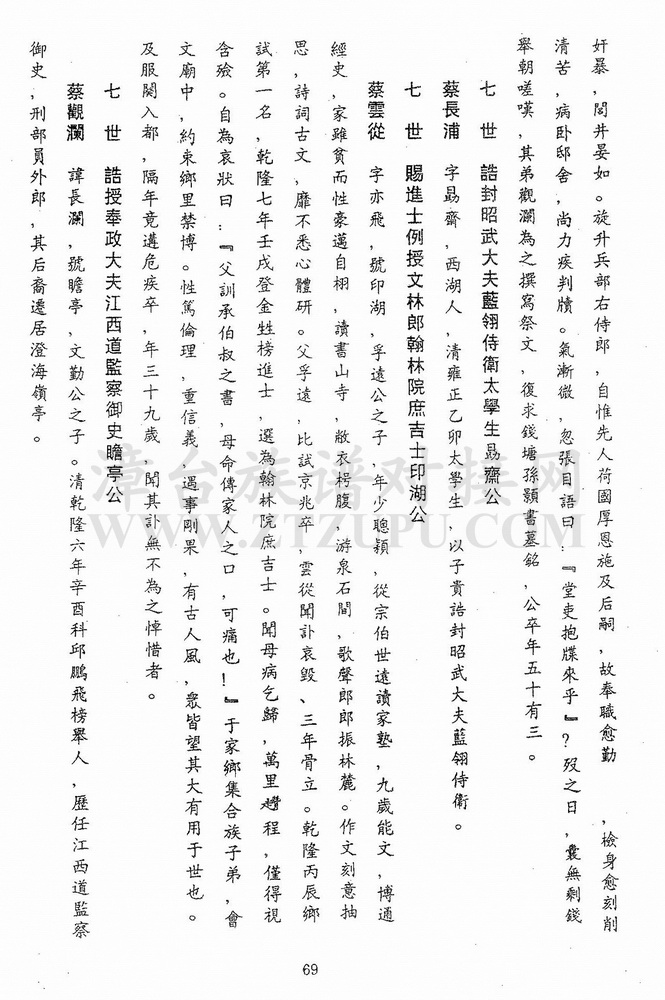 奸暴，閭井晏如。旋升兵部右侍郎，自惟先人荷國厚恩施及后嗣，故奉職愈勤，檢身愈刻削
清苦，病卧邸舍，尚力疾判牘。氣漸微，忽張目語曰：『堂吏抱牒來乎』？歿之日，囊無剩錢
舉朝嗟嘆，其弟觀瀾為之撰寫祭文，復求錢塘孫顥書墓銘，公卒年五十有三。
七世 誥封昭武大夫藍翎侍衛太學生勗齋公
蔡長浦 字勗齋，西湖人，清雍正乙卯太學生，以子貴誥封昭武大夫藍翎侍衛。
七世 賜進士例授文林郎翰林院庶吉士印湖公
蔡雲從 字亦飛，號印湖，孚遠公之子，年少聰穎，從宗伯世遠讀家塾，九歲能文，博通
經史，家雖貧而性豪邁自栩，讀書山寺，敝衣枵腹，游泉石間，歌聲郎郎振林麓。作文刻意抽
思，詩詞古文，靡不悉心體研。父孚遠，比試京兆卒，雲從聞訃哀毀、三年骨立。乾隆丙辰鄉
試第一名，乾隆七年壬戌登金甡榜進士，選為翰林院庶吉士。聞母病乞歸，萬里趲程，僅得視
含殮。自為哀狀曰：『父訓承伯叔之書，母命傳家人之口，可痛也！』于家鄉集合族子弟，會
文廟中，約束鄉里禁博。性篤倫理，重信義，遇事剛果，有古人風，衆皆望其大有用于世也。
及服闋入都，隔年竟遘危疾卒，年三十九歲，聞其訃無不為之悼惜者。
七世 誥授奉政大夫江西道監察御史瞻亭公
蔡觀瀾 諱長瀾，號瞻亭，文勤公之子。清乾隆六年辛酉科邱鵬飛榜舉人，歷任江西道監察
御史，刑部員外郎，其后裔遷居澄海嶺亭。
69
漳台族谱对接网
WWW.ZTZUPU.COM